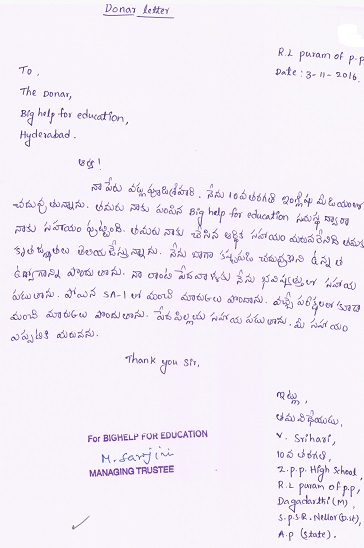 Donar letter
R.L puram of p.p
Date : 3-11-2016.
To,
The Donar,
Big help for education,
Hyderabad.
అక్క !
నా పేరు వల్లుపూరు శ్రీహరి. నేను 10వ తరగతి ఇంగ్లీషు మీడియంలో
చదువుతున్నాను. తమరు నాకు పంపిన Big help for education సంస్థ ద్వారా
నాకు సహాయం పుట్టింది. తమరు నాకు చేసిన ఆర్థిక సహాయం మరువలేనిది తమకు
కృతజ్ఞతలు తెలియజేస్తున్నాను. నేను బాగా కష్టపడి చదువుకొని ఉన్నత
ఉద్యోగాన్ని పొందుతాను. నా లాంటి పేదవాళ్ళకు నేను భవిష్యత్తులో సహాయ
పడుతాను. పోయిన SA-1 లో మంచి మార్కులు పొందాను. వచ్చే పరీక్షలలో కూడా
మంచి మార్కులు పొందుతాను. పేద పిల్లలకు సహాయ పడుతాను. మీ సహాయం
ఎప్పటికి మరువను.
Thank you Sir,
ఇట్లు,
తమ విధేయుడు,
V. Srihari,
10వ తరగతి,
Z.p.p. High School,
R.L puram of p.p,
Dagadarthi (M),
S.p.S.R. Nellor (D.st),
A.p (State).
For BIGHELP FOR EDUCATION
M. Sarjini
MANAGING TRUSTEE